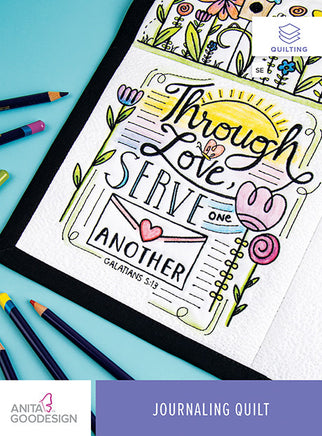 QUILTING
SE
Through
Love,
SERVE ONE
ANOTHER
GALATIANS 5:13
ANITA
GOODESIGN
JOURNALING QUILT